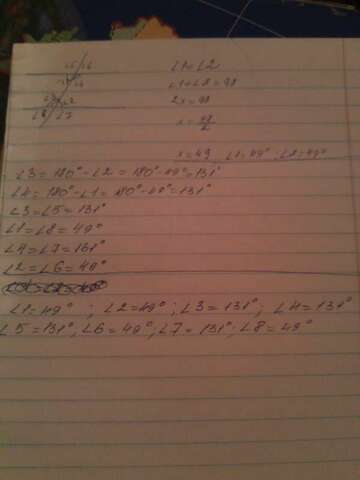 ∠1=∠2
∠1+∠2=98
2x=98
x=98/2
x=49 ∠1=49° ; ∠2=49°
∠3=180°-∠2=180°-49°=131°
∠4=180°-∠1=180°-49°=131°
∠3=∠5=131°
∠1=∠8=49°
∠4=∠7=161°
∠2=∠6=49°
∠1=49° ; ∠2=49° ; ∠3=131° ; ∠4=131°
∠5=131° ; ∠6=49° ; ∠7=131° ; ∠8=49°